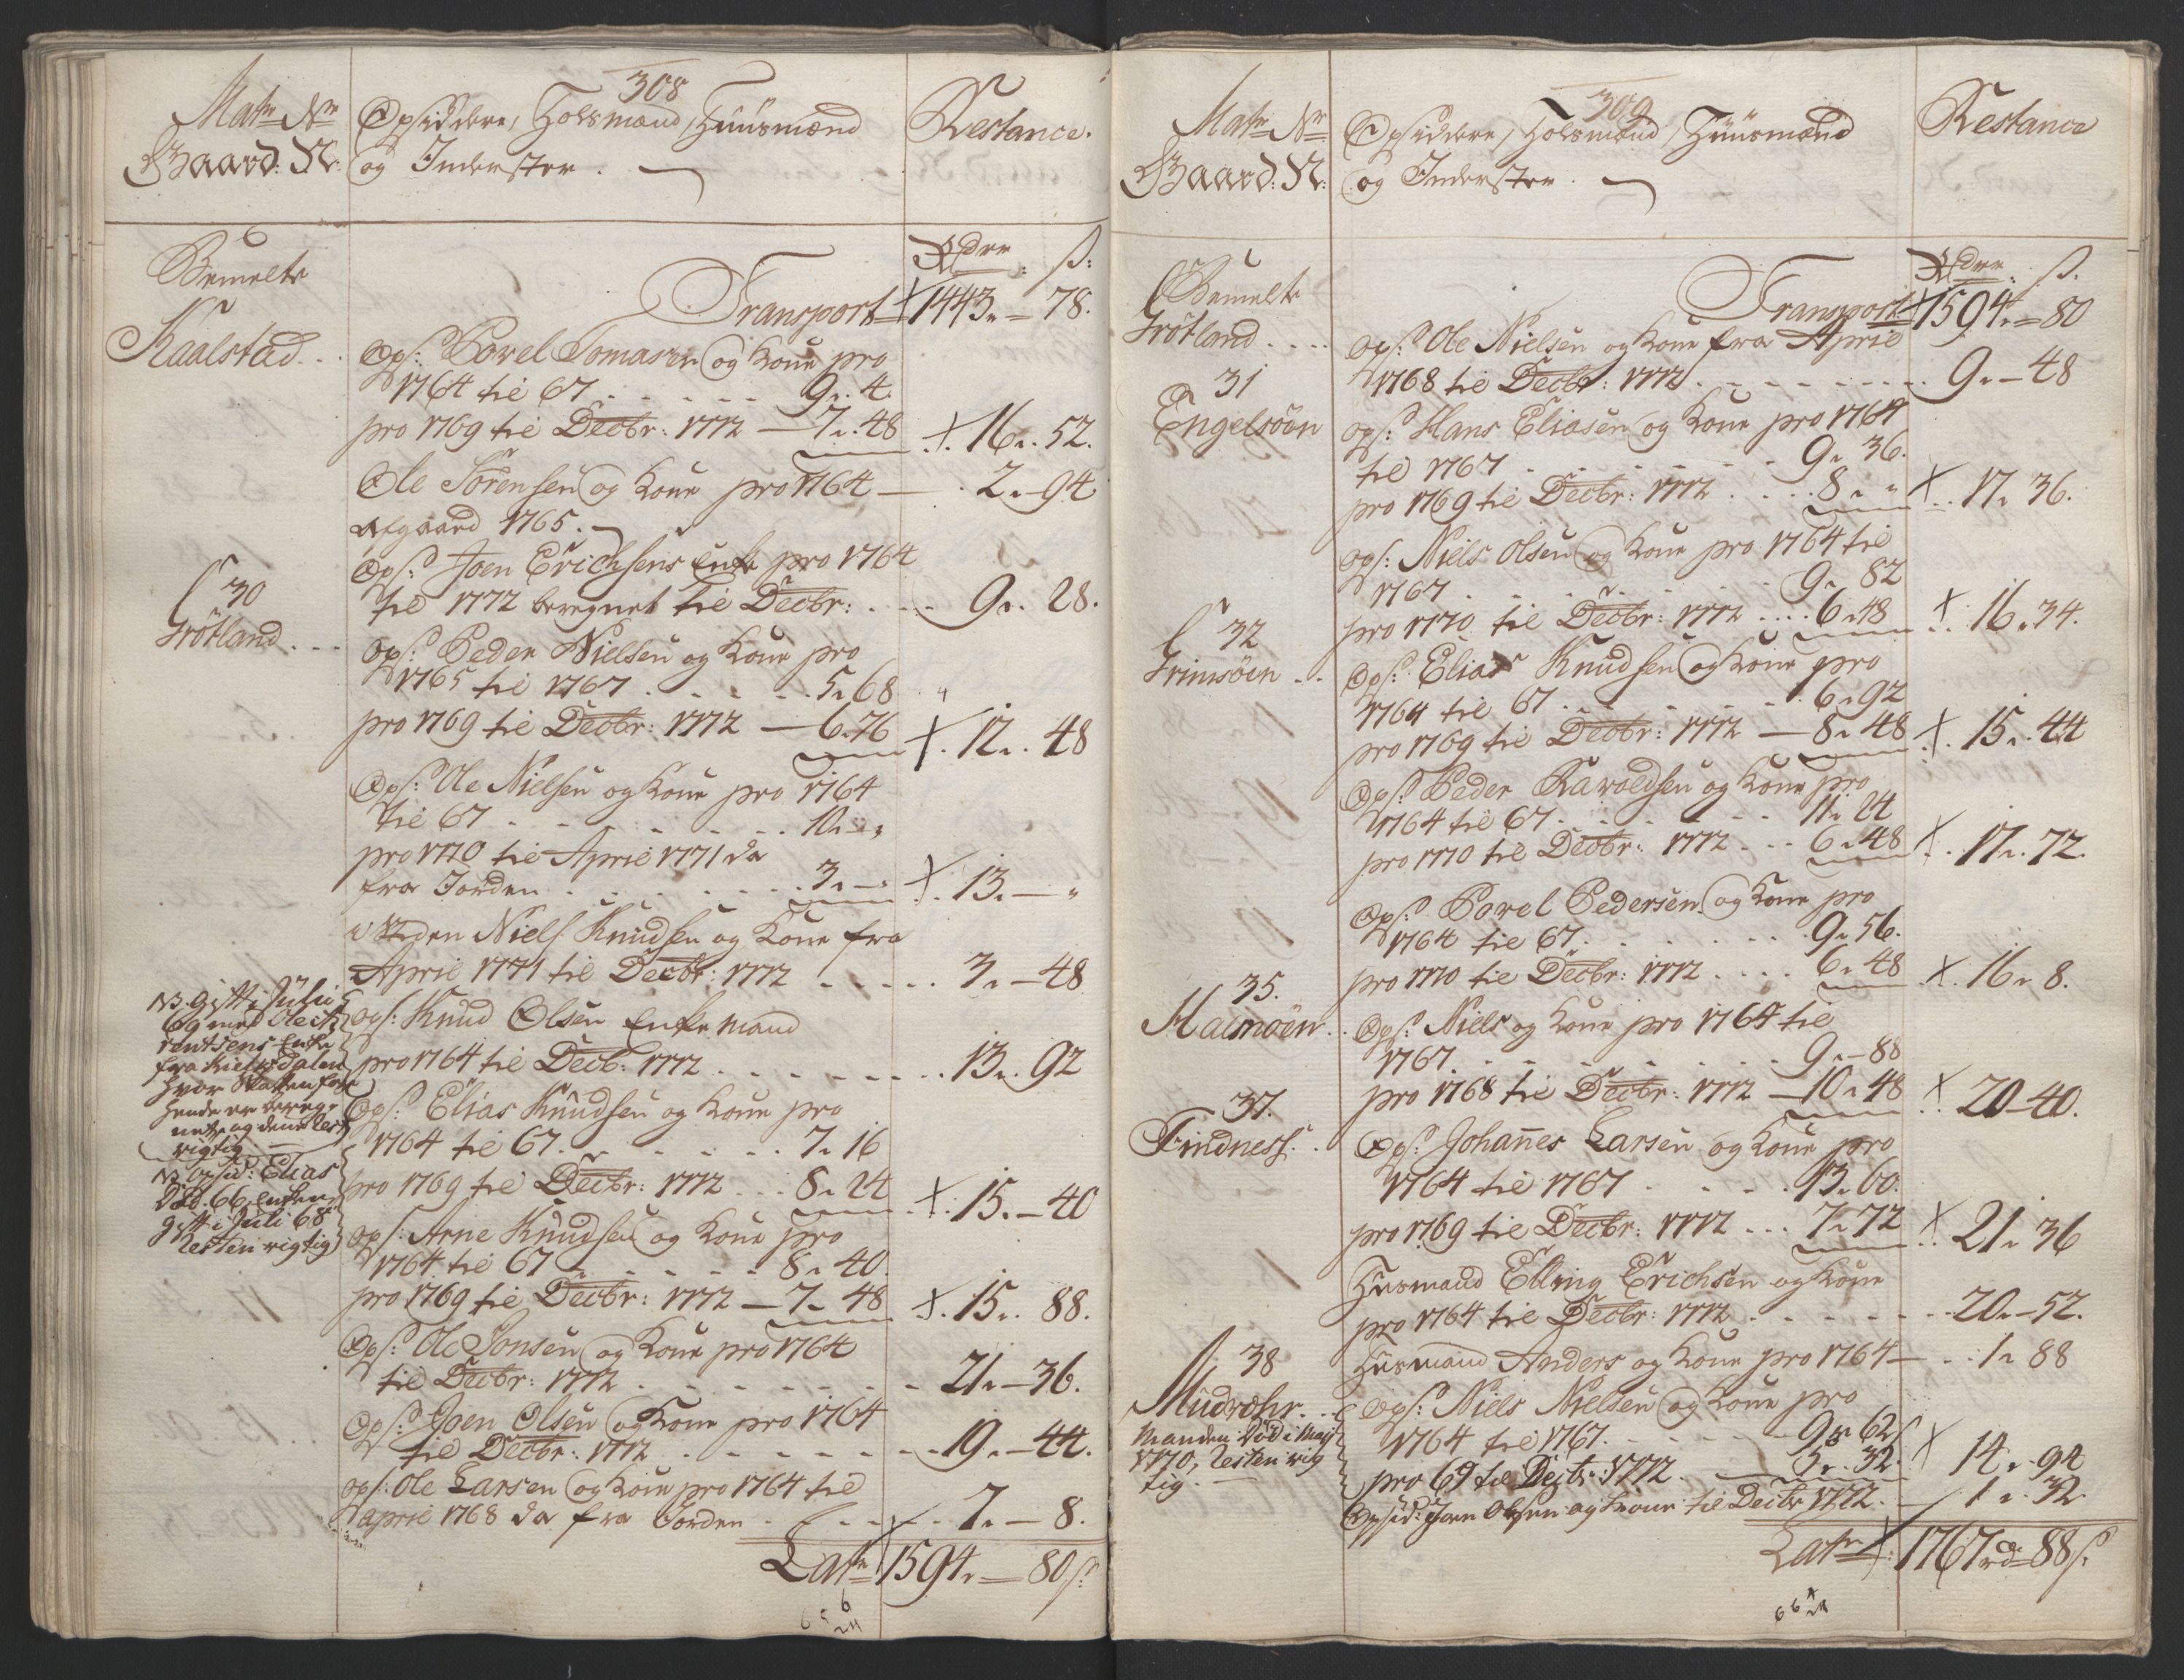 308
Matr: Nr
Gaard: N:
Opsiddere, Holsmænd, Huusmænd
og Inderster.
Restance.
Bemelte
Rdr: ß:
Transport 1443. 78.
Kaalstad...
Ops: Povel Tomasen og Kone pro
1764 til 67 . . . . . 9. 4.
pro 1769 til Decbr: 1772 — 7. 48 16. 52.
Ole Sørensen og Kone pro 1764 — 2. 94
afgaard 1765.
Ops: Joen Erichsens Enke pro 1764
til 1772 beregnet til Decbr: . . . 9. 28.
30
Trötland...
Ops: Peder Nielsen og Kone pro
1765 til 1767 . . . . . 5. 68
pro 1769 til Decbr: 1772 — 6. 76 12. 48
Ops: Ole Nielsen og Kone pro 1764
til 67 . . . . . 10. "
pro 1770 til April 1771 da
fra Jorden . . . . . 3. — 13. — "
Niels Knudsen og Kone fra
April 1771 til Decbr: 1772 . . . . 3. — 48
NB. gift i Julii
69 med Ole
rentsens Enke
fra
hvor Skatten for
hende er bereg-
net, og denne Rest
rigtig
Ops: Knud Olsen Enkemand
pro 1764 til Decb: 1772 . . . . . 13. 92
Ops: Elias Knudsen og Kone pro
1764 til 67 . . . . . 7. 16
pro 1769 til Decbr: 1772 . . 8. 24 15. — 40
NB. Opsid: Elias
Død. 66, Enken
gift i Juli 68
Resten rigtig
Ops: Arne Knudsen og Kone pro
1764 til 67 . . . . . 8. 40.
pro 1769 til Decbr: 1772 — 7. 48 15. 88.
Ops: Ole Jonsen og Kone pro 1764
til Decbr: 1772 . . . . . 21. — 36.
Ops: Joen Olsen og Kone pro 1764
til Decbr: 1772 . . . . . 19. — 44.
ops: Ole Larsen og Kone pro 1764 til
april 1768 da fra Jorden . . . . 7. — 8.
Latr 1594. — 80 ß:
309
Matr: Nr
Gaard: N:
Opsiddere, Holsmænd, Huusmænd
og Inderster.
Restance
Bemelte
Rdr: ß.
Transport 1594. — 80
Trötland....
Ops: Ole Nielsen og Kone fra April
1768 til Decbr: 1772 . . . . . 9. — 48
31
Engelsøen
Ops: Hans Eliasen og Kone pro 1764
til 1767 . . . . . 9. 36.
pro 1769 til Decbr: 1772 . . . . 8. " 17. 36.
ops: Niels Olsen og Kone pro 1764 til
1767 . . . . . 9. 82
pro 1770 til Decbr: 1772 . . . . 6. 48 16. 34.
32
Trimsöen . .
Ops: Elias Knudsen og Kone pro
1764 til 67 . . . . . 6. 92
pro 1769 til Decbr: 1772 — 8. 48 15. 44
Ops: Peder Haroldsen og Kone pro
1764 til 67 . . . . . 11. 24
pro 1770 til Decbr: 1772 . . . 6. 48 17. 72.
Ops: Povel Pedersen og Kone pro
1764 til 67 . . . . . 9. 56.
pro 1770 til Decbr: 1772 . . . . 6. 48 16. 8.
35.
Halmöen . .
Ops: Niels og Kone pro 1764 til
1767 . . . . . 9. — 88
pro 1768 til Decbr: 1772 — 10. 48 20 — 40.
37.
Findness: .
Ops: Johannes Larsen og Kone pro
1764 til 1767 . . . . 13. 60.
pro 1769 til Decbr: 1772 . . . 7. 72 21. 36
Husmand Elling Erichsen og Kone
pro 1764 til Decbr: 1772 . . . . . 20. — 52.
Husmand Anders og Kone pro 1764 — . . 1. 88
38
Mudvær. . .
Manden Död i Maj
1770, Resten rig
tig.
ops: Niels Nielsen og Kone pro
1764 til 1767. . . . . 9. 62
pro 69 til Decbr: 1772. — 5. 32. 14. 94
Opsid: Joen Olsen og Kone til Decbr 1772. — 1. 32.
Latr 1767 rd 88 ß